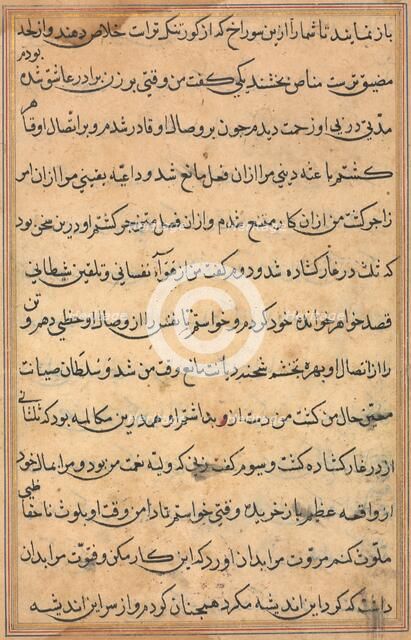 باز نمایند تا شما را ازین سوراخ که از کور تنک تراست خلاص دهند و از لحد
مضیق ترست مناص بخشند یکی کفت من وقتی بر زن برادر عاشق شده بودم
مدتی در پی او زحمت دیدم چون بر وصال او قادر شدم و بر اتصال او قاهر
کشتم باعثه دینی مرا ازان فعل مانع شد و داعیه یقینی مرا ازان امر
زاجر کشت من ازان کار ممتنع شدم و ازان فعل منزجر کشتم او درین سخن بود
که ثلث در غار کشاده شد دوم کفت من از هواء نفسانی و تلقین شیطانی
قصد خواهر خوانده خود کردم و خواستم تا نفس را از وصال او حظی دهم و تن
را از اتصال او بهره بخشم شحنه دیانت مانع وقت من شد و سلطان صیانت
معین حال من کشت من دست ازو بداشتم او همدرین مکالمه بود که ثلث ثانی
از در غار کشاده کشت و سیوم کفت زنی که ولیه نعمت من بود و مرا بمال خود
از واقعه عظیم باز خریده وقتی خواستم تا دامن وقت او بلوث نا حفاظی
ملوث کنم مروت مرا بدان آورد که این کار مکن و فتوت مرا بدان
داشت که کرد این اندیشه مکرد همچنان کردم و از سر این اندیشه
heritage